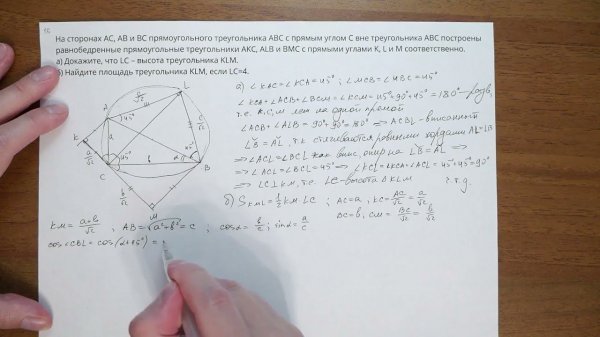 На сторонах AC, AB и BC прямоугольного треугольника ABC с прямым углом C вне треугольника ABC построены
равнобедренные прямоугольные треугольники AKC, ALB и BMC с прямыми углами K, L и M соответственно.
а) Докажите, что LC – высота треугольника KLM.
б) Найдите площадь треугольника KLM, если LC=4.
а) ∠KAC=∠KCA=45°; ∠MCB=∠MBC=45°
∠KCA+∠ACB+∠BCM=∠KCM=45°+90°+45°=180°-разв,
т.е. K,C,M лежат на одной прямой
∠ACB+∠ALB=90°+90°=180° ⇒ ACBL-вписанный
LB=AL, т.к. стягиваются равными хордами AL=LB
⇒∠ACL=∠BCL как впис, опир на LB=AL ⇒
⇒∠ACL=∠BCL=45° ⇒ ∠KCL=∠KCA+∠ACL=45°+45°=90°
⇒ LC⊥KM, т.е. LC-высота ΔKLM
ч.т.д.
б) S_KML=½KM·LC; AC=a, KC=AC/√2=a/√2
BC=b, CM=BC/√2=b/√2
KM=(a+b)/√2, AB=√(a²+b²)=c, cosα=b/c; sinα=a/c
cos∠CBL=cos(α+45°)=
L
A
K
C
B
M
a
b
45°
45°
α
c/√2
a/√2
b/√2